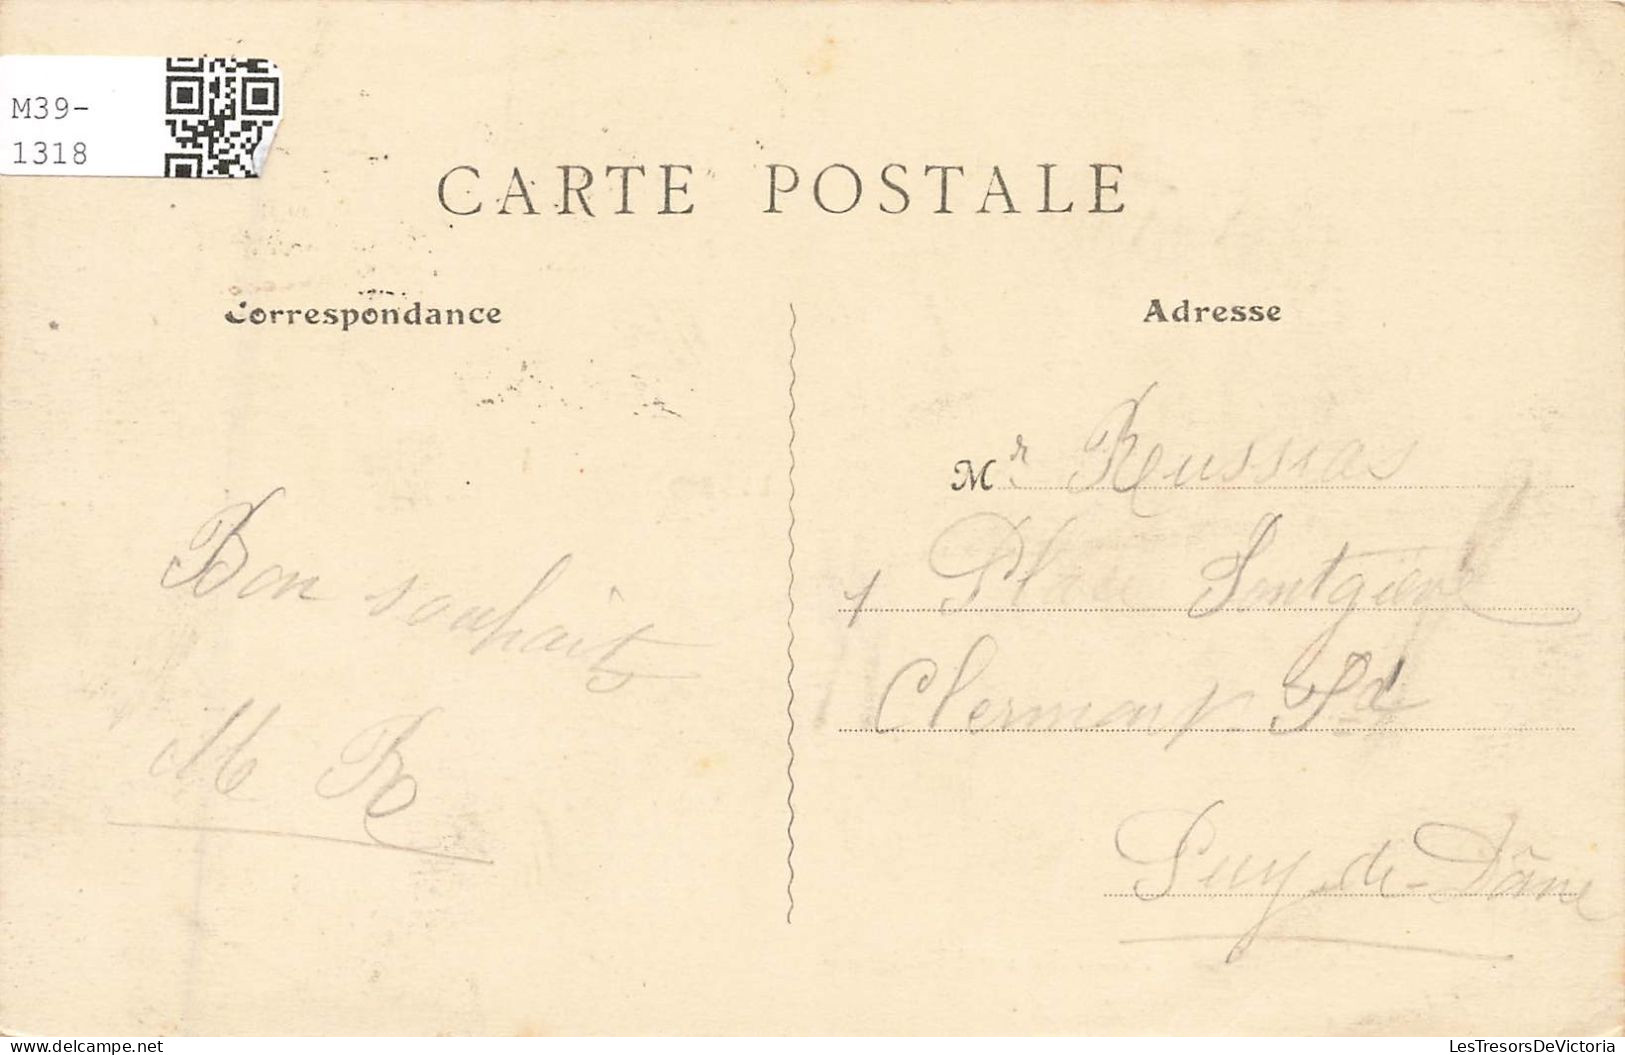 M39-
1318
CARTE POSTALE
Correspondance
Adresse
Mr Reussias
1 Place
Clermont Fd
Puy-de-Dôme
Bon souhaits
M R
delcampe.net
LesTresorsDeVictoria